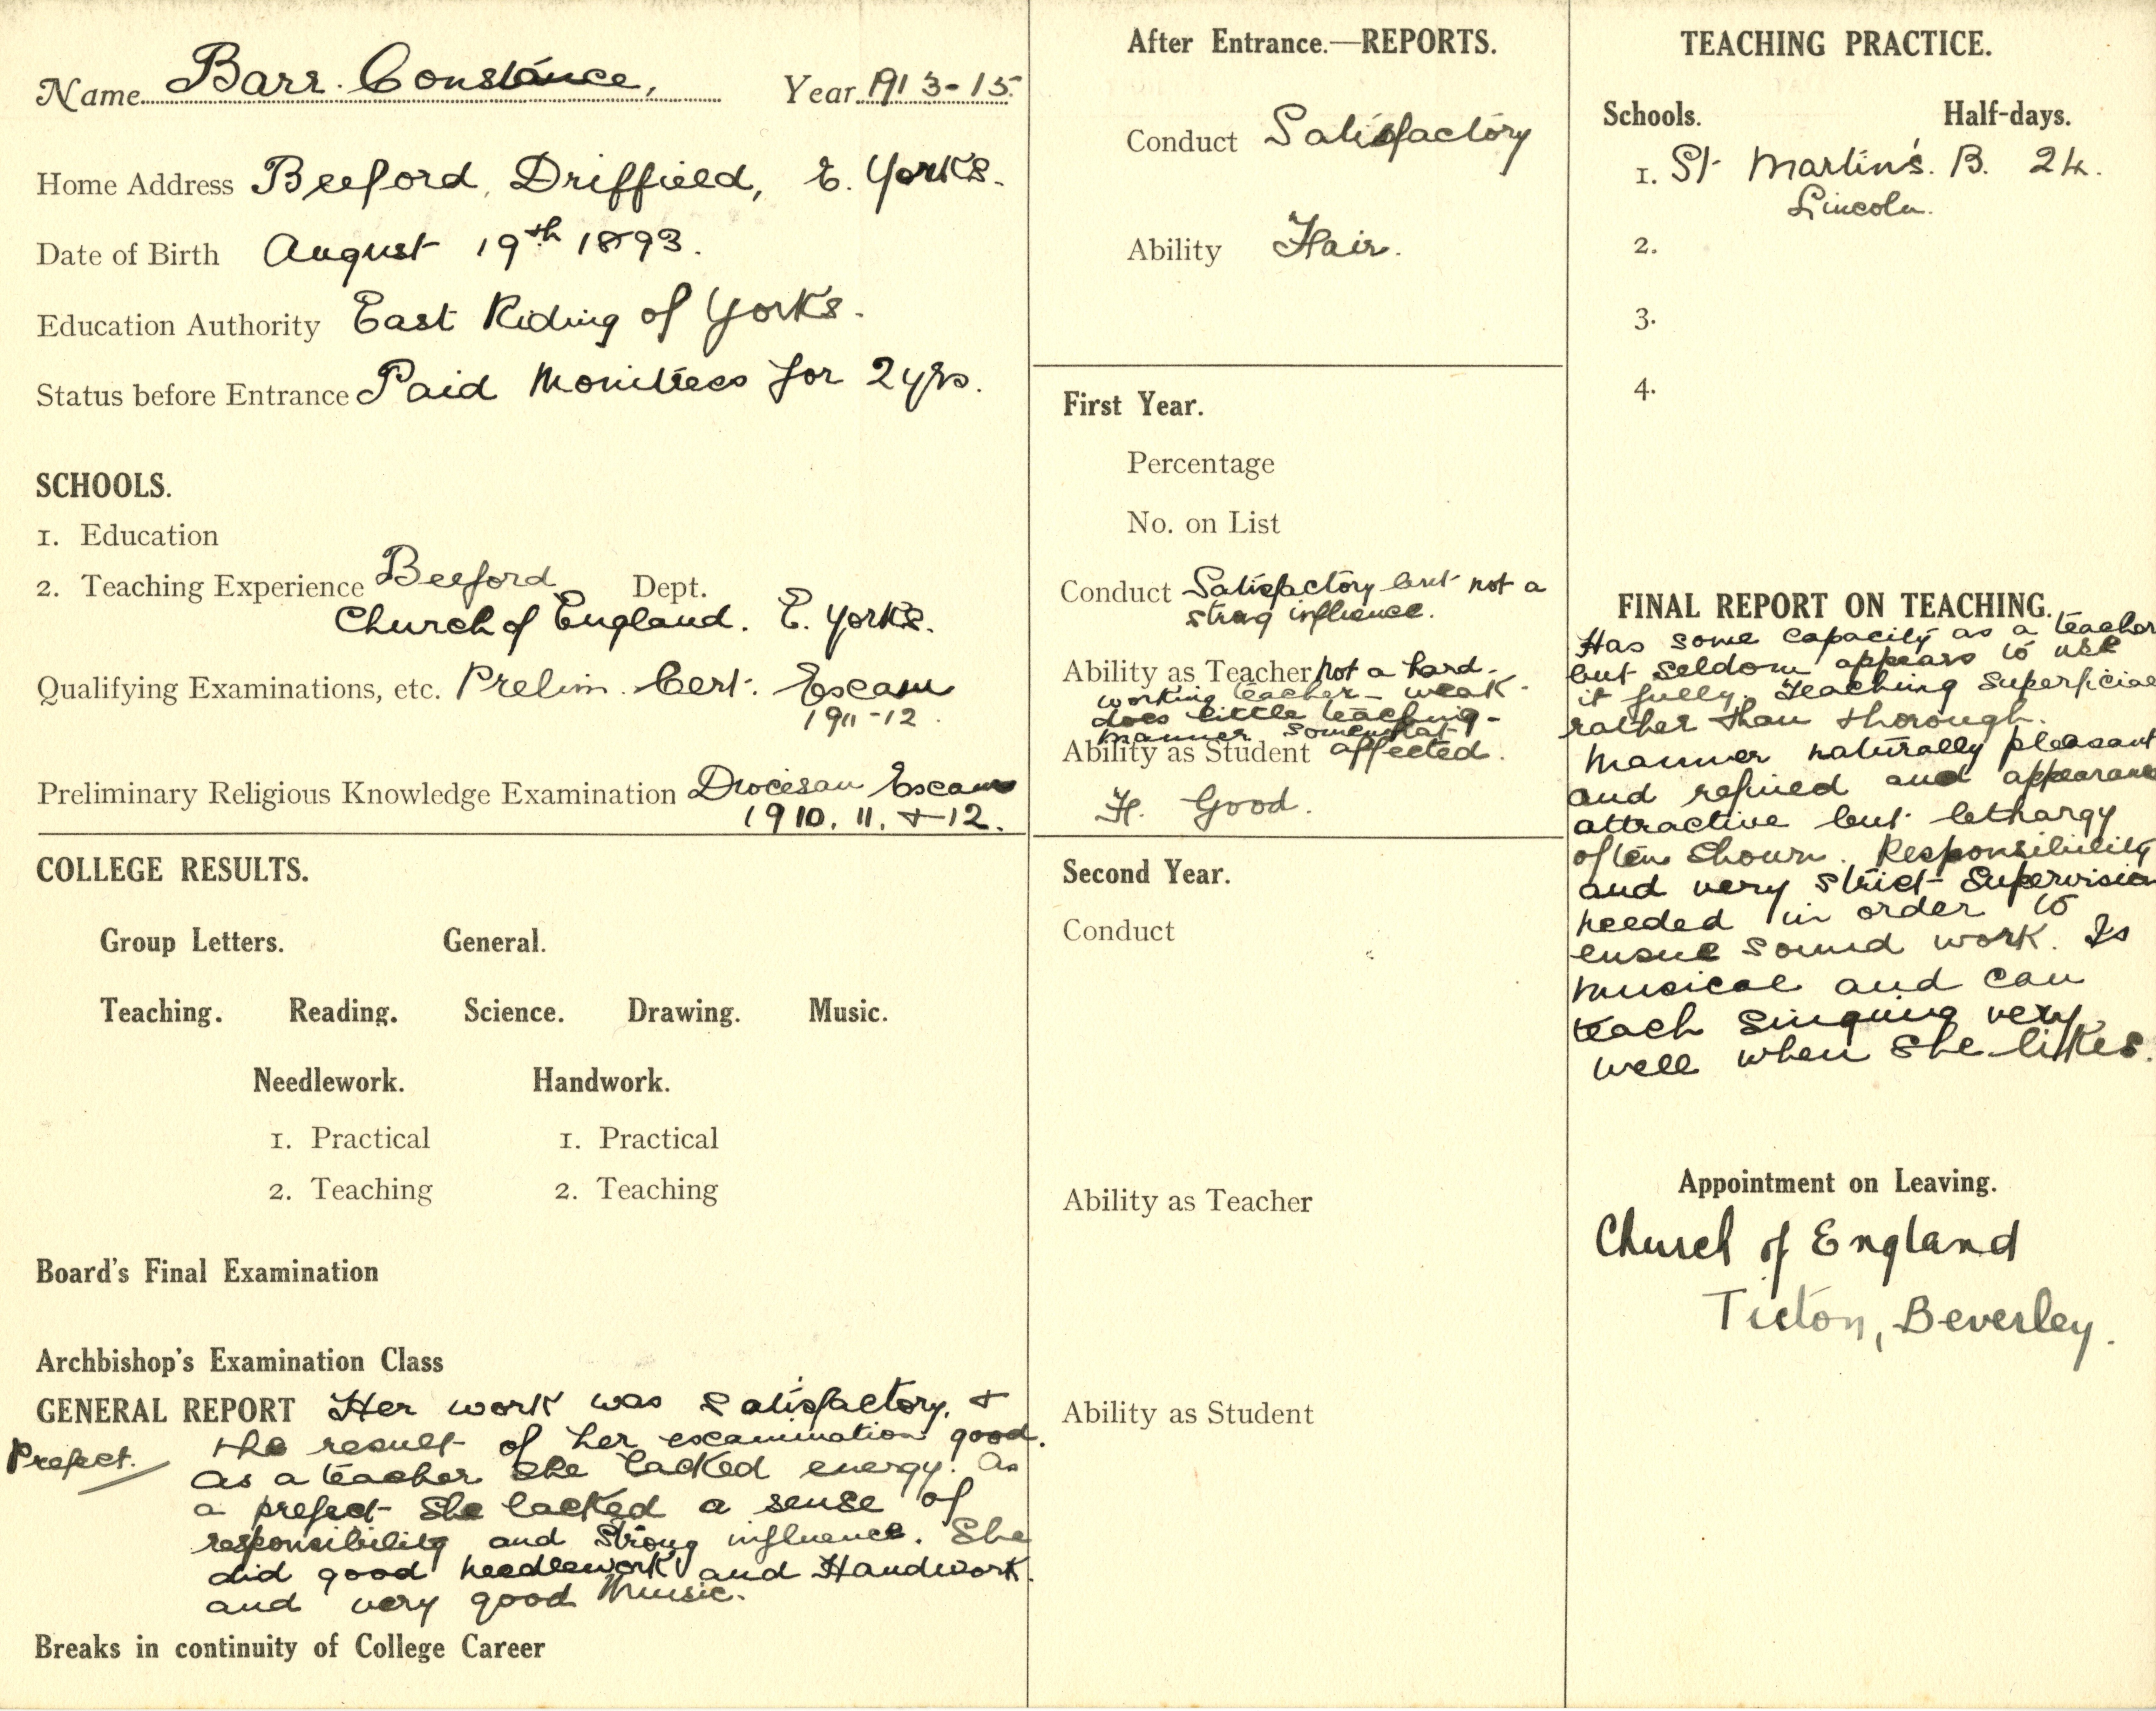 Name Barr. Constance, Year 1913-15.
Home Address Beeford, Driffield, E. Yorks.
Date of Birth August 19th 1893.
Education Authority East Riding of Yorks.
Status before Entrance Paid Monitress for 2 yrs.
SCHOOLS.
1. Education
2. Teaching Experience Beeford Dept.
Church of England. E. Yorks.
Qualifying Examinations, etc. Prelim. Cert. Exam
1911-12.
Preliminary Religious Knowledge Examination Diocesan Exams
1910. 11. + 12.
COLLEGE RESULTS.
Group Letters. General.
Teaching. Reading. Science. Drawing. Music.
Needlework. Handwork.
1. Practical 1. Practical
2. Teaching 2. Teaching
Board's Final Examination
Archbishop's Examination Class
GENERAL REPORT Her work was satisfactory, +
Prefect. the result of her examination good.
As a teacher she lacked energy. As
a prefect she lacked a sense of
responsibility and strong influence. She
did good needlework and Handwork.
and very good Music.
Breaks in continuity of College Career
After Entrance.—REPORTS.
Conduct Satisfactory
Ability Fair.
First Year.
Percentage
No. on List
Conduct Satisfactory but not a
strong influence.
Ability as Teacher Not a hard-
working teacher - weak -
does little teaching -
manner somewhat
Ability as Student affected.
F. Good.
Second Year.
Conduct
Ability as Teacher
Ability as Student
TEACHING PRACTICE.
Schools. Half-days.
1. St Martin's. B. 24.
Lincoln.
2.
3.
4.
FINAL REPORT ON TEACHING.
Has some capacity as a teacher
but seldom appears to use
it fully. Teaching superficial
rather than thorough.
Manner naturally pleasant
and refined and appearance
attractive but lethargy
often shown. Responsibility
and very strict supervision
needed in order to
ensue sound work. Is
musical and can
teach singing very
well when she likes.
Appointment on Leaving.
Church of England
Ticton, Beverley.